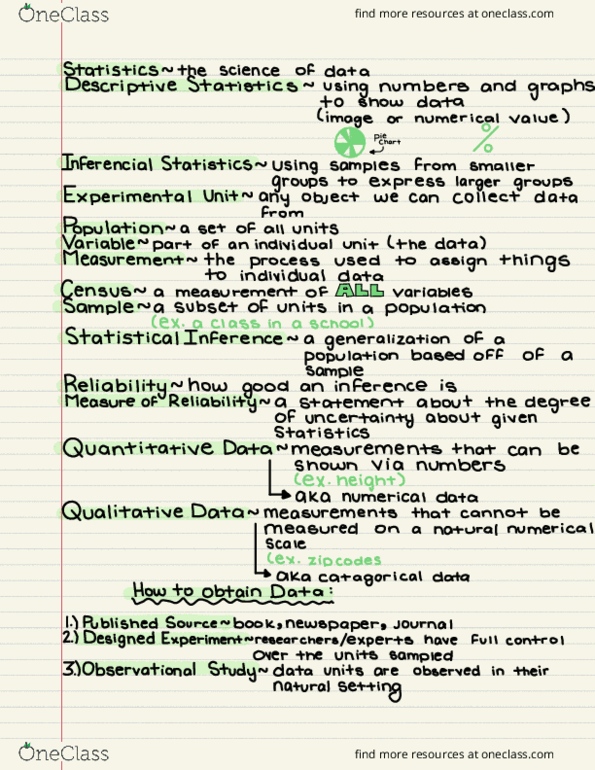 OneClass
find more resources at oneclass.com
Statistics~the science of data
Descriptive Statistics~ using numbers and graphs
to show data
(image or numerical value)
pie
chart
%
Inferencial Statistics~using samples from smaller
groups to express larger groups
Experimental Unit~any object we can collect data
from
Population~a set of all units
Variable~part of an individual unit (the data)
Measurement~ the process used to assign things
to individual data
Census~ a measurement of ALL variables
Sample~a subset of units in a population
(ex. a class in a school)
Statistical Inference~a generalization of a
population based off of a
sample
Reliability~how good an inference is
Measure of Reliability~a statement about the degree
of uncertainty about given
statistics
Quantitative Data~measurements that can be
shown via numbers
(ex. height)
aka numerical data
Qualitative Data~measurements that cannot be
measured on a natural numerical
scale
(ex. zipcodes
aka catagorical data
How to obtain Data:
1.) Published Source~book, newspaper, journal
2.) Designed Experiment~researchers/experts have full control
over the units sampled
3.)Observational Study~data units are observed in their
natural setting
OneClass
find more resources at oneclass.com